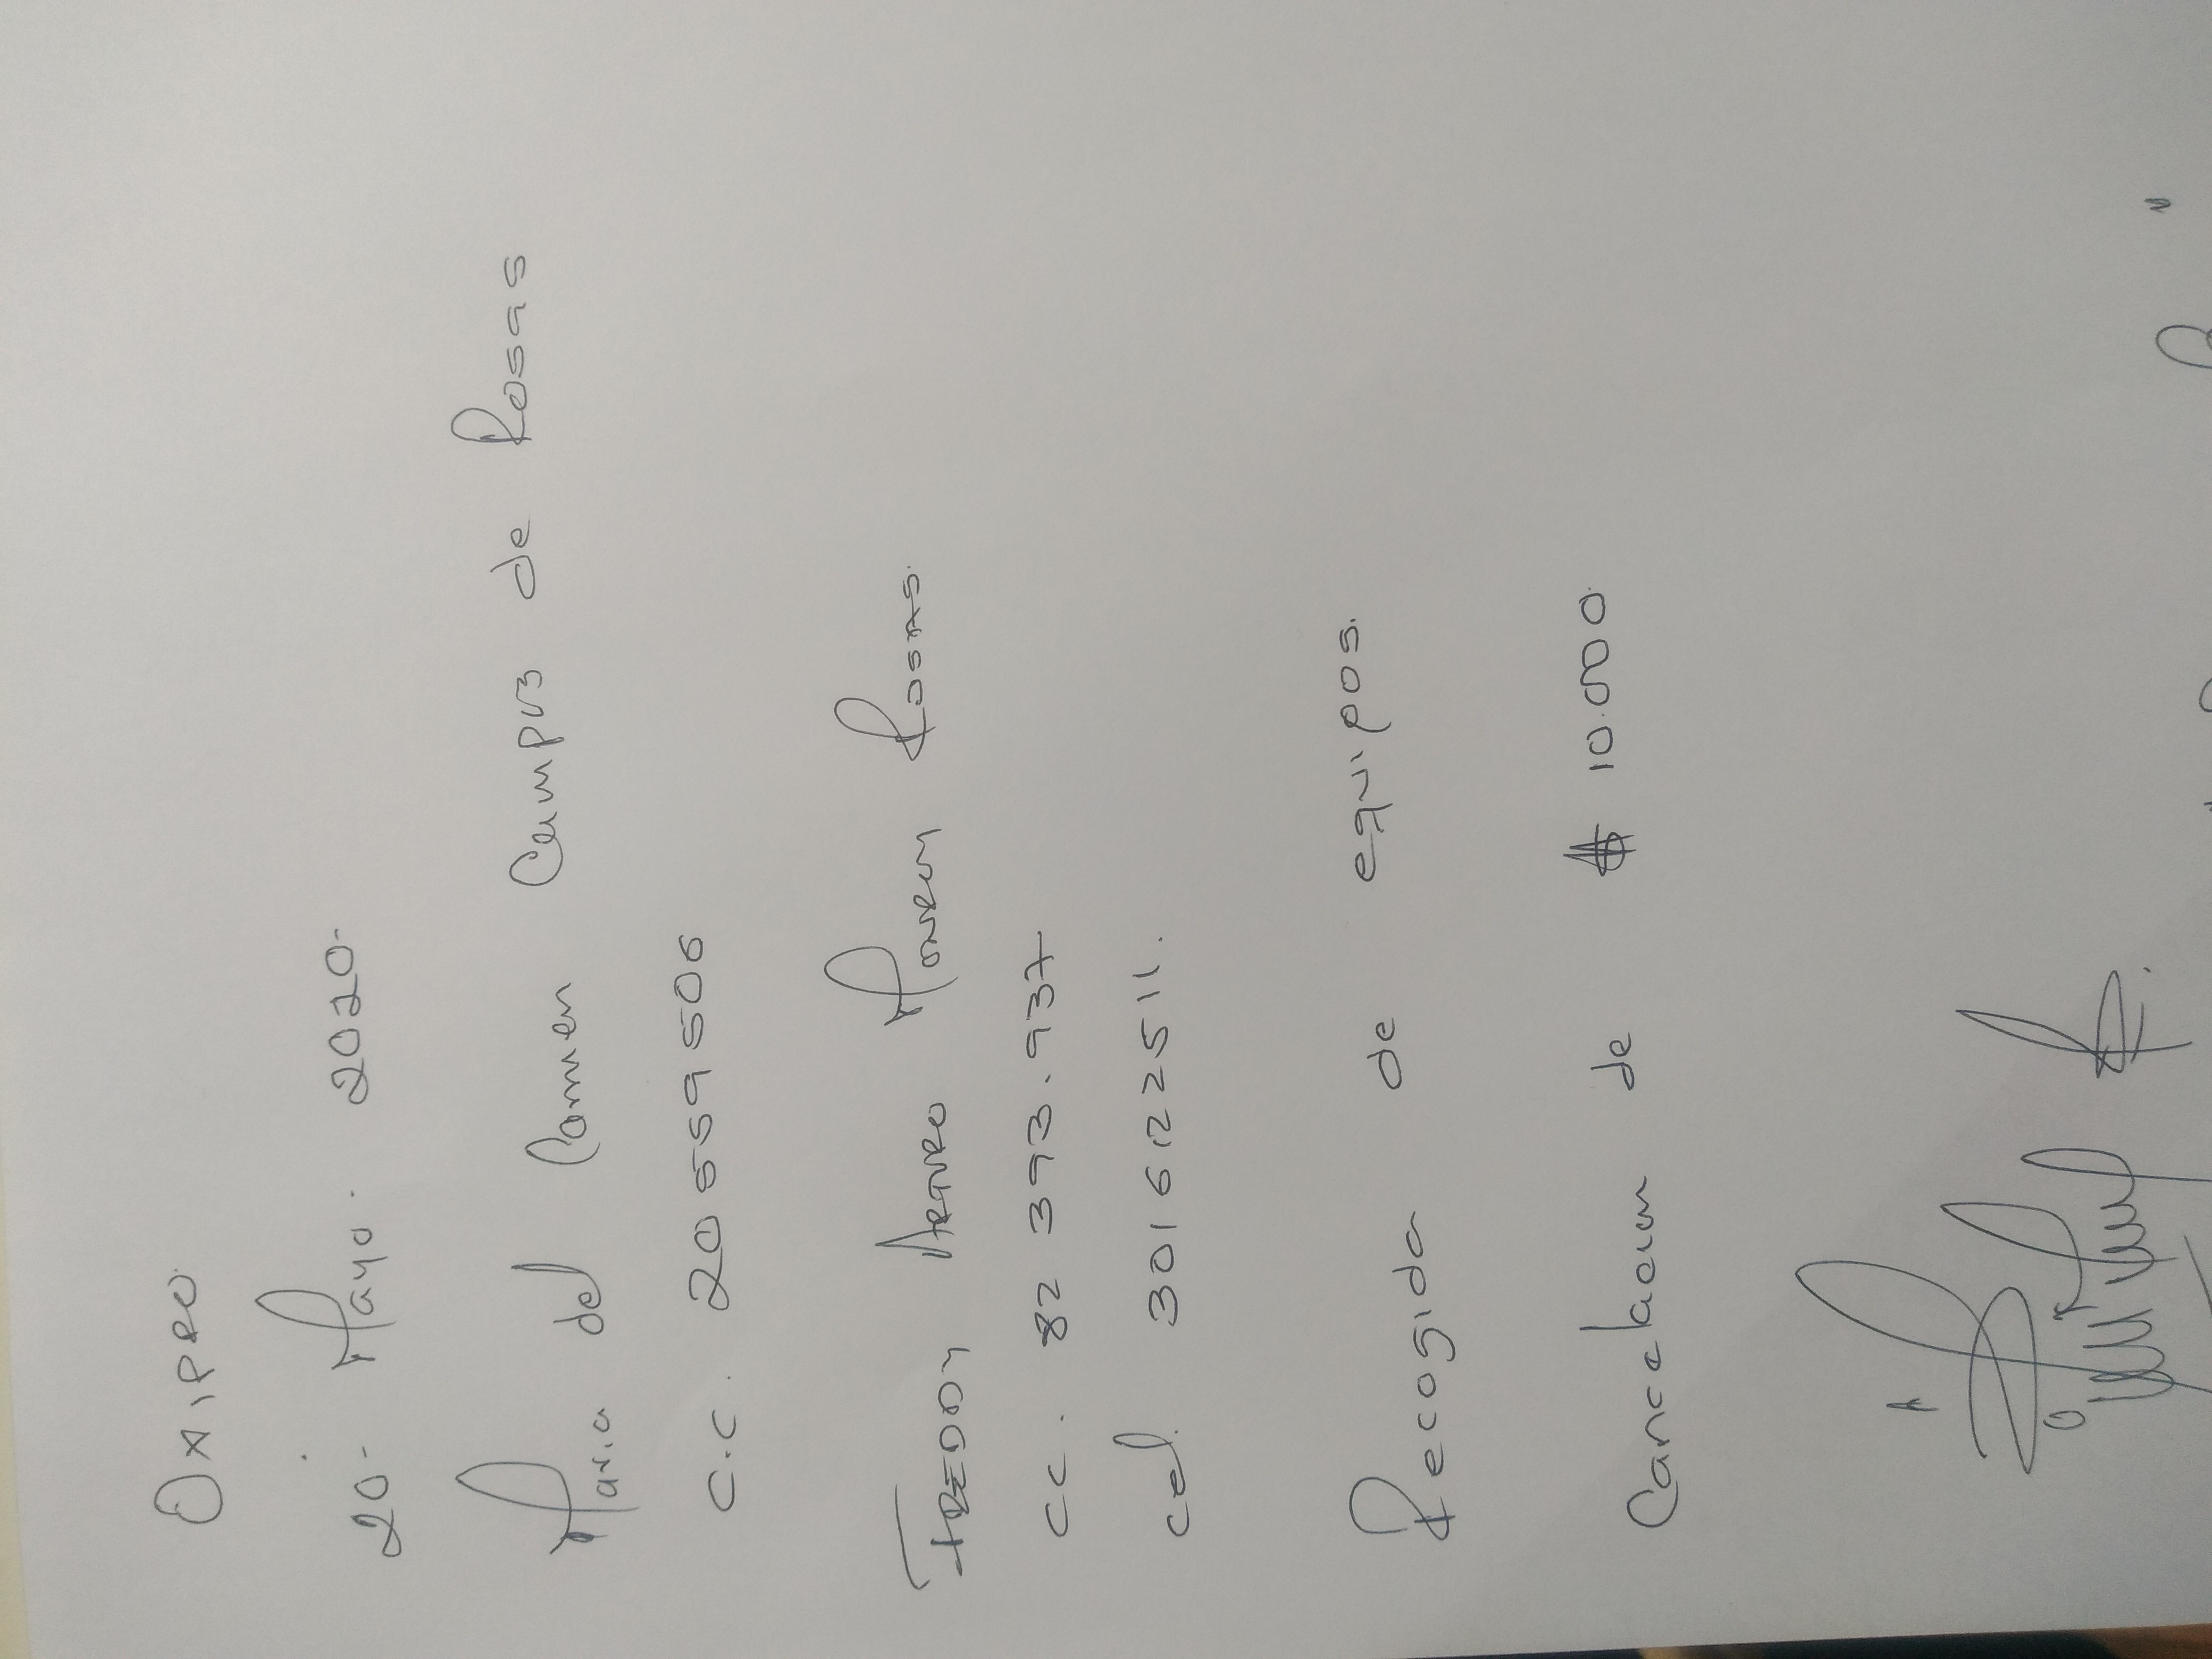 OXIPRO.
20- Mayo. 2020.
Maria del Carmen Campos de Rosas
C.C. 20 559 506
FREDDY ARTURO Moreno Rosas.
CC. 82 393.937
cel. 301 6122511.
Recogida de equipos.
Cancelacion de $ 10.000.